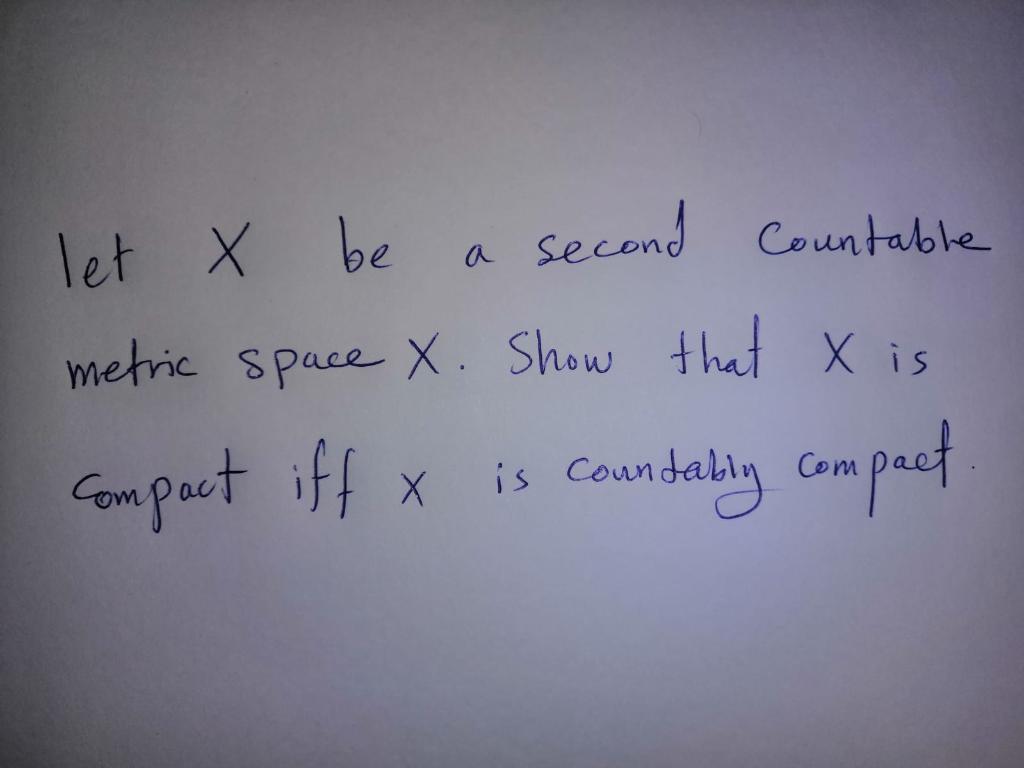 let X be a second Countable
metric space X. Show that X is
Compact iff X is countably compact.